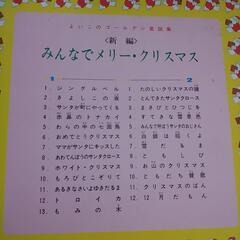 よいこのゴールデン童謡集
〈新編〉
みんなでメリー・クリスマス
1
1. ジングルベル
2. きよしこの夜
3. サンタが町にやってくる
4. 赤鼻のトナカイ
5. わらの中の七面鳥
6. おめでとうクリスマス
7. ママがサンタにキッスした
8. あわてんぼうのサンタクロース
9. ホワイト・クリスマス
10. もろびとこぞりて
11. あるきなさいよゆきだるま
12. トロイカ
13. もみの木
2
1. たのしいクリスマスの鐘
2. とんできたサンタクロース
3. まきびとひつじを
4. すてきな雪景色
5. サンタはゆかいなおじさん
6. 白銀は招くよ
7. 雪だるま
8. ともしび
9. お山のクリスマス
10. ともだち賛歌
11. クリスマスのばん
12. 12月だもん